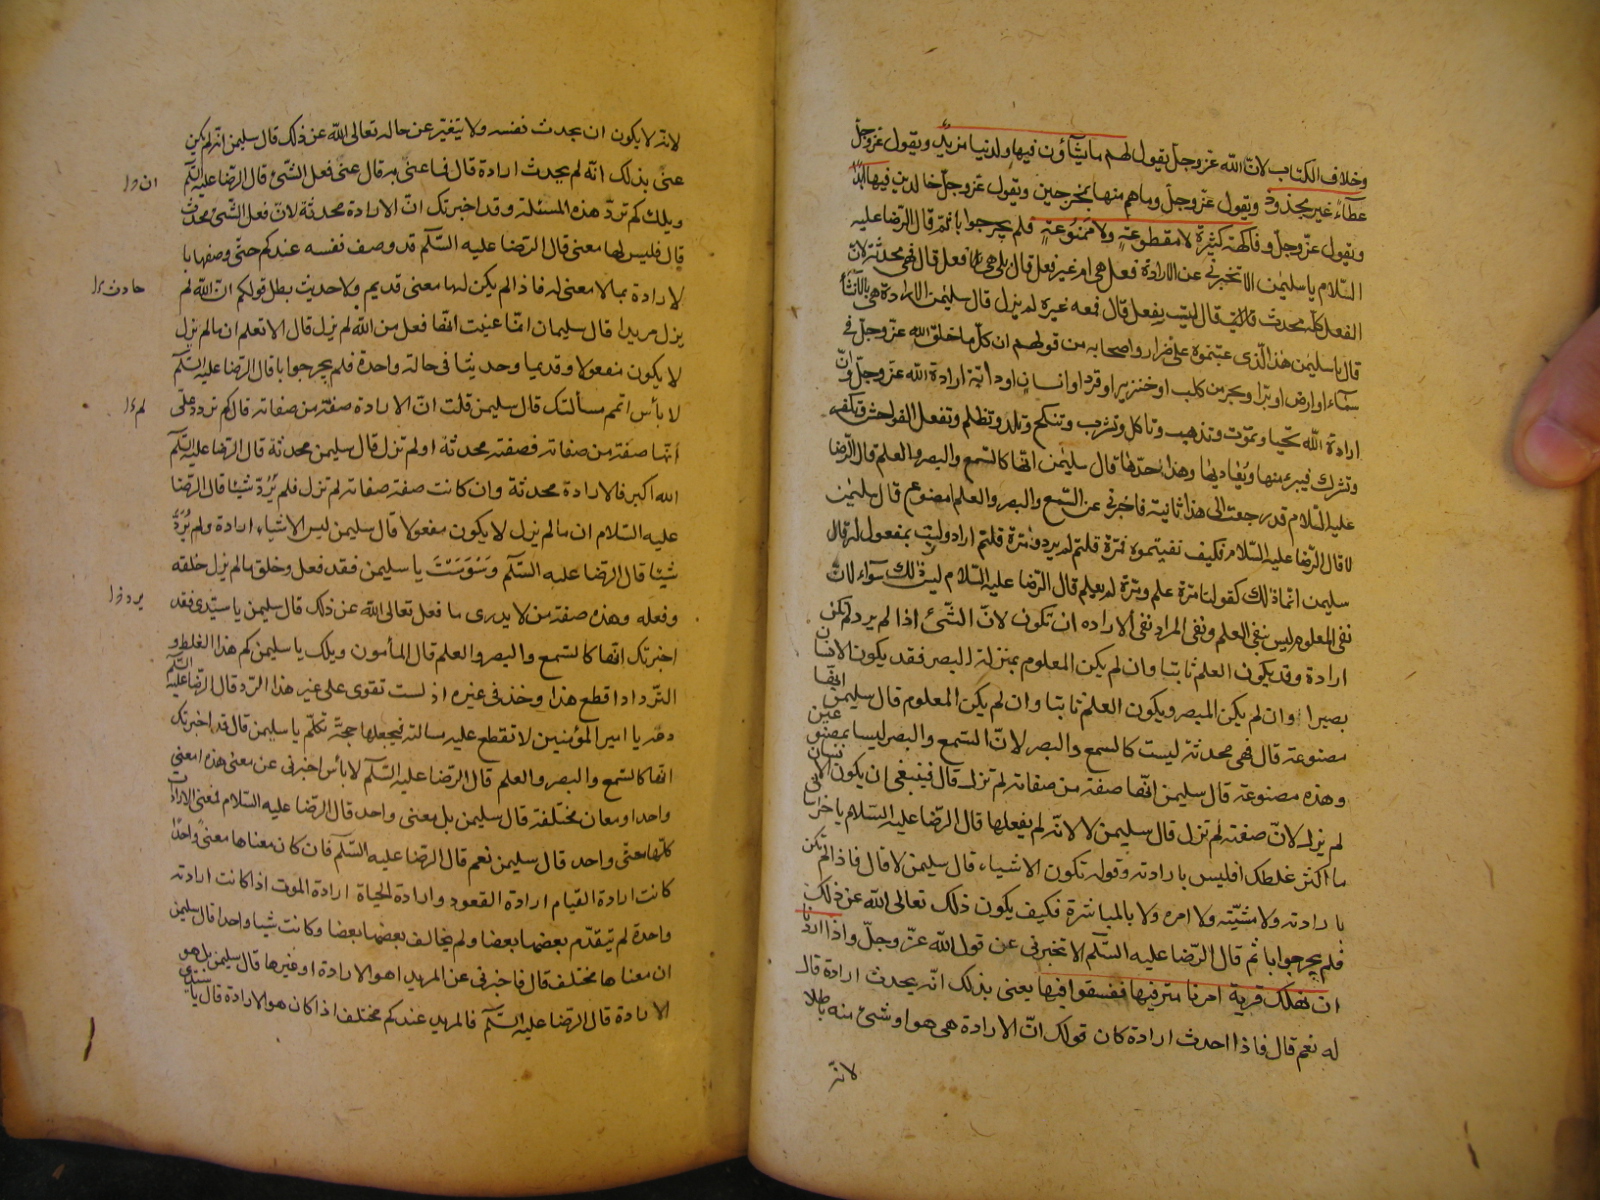 وخلاف الكتاب لانّ الله عزّ وجلّ يقول لهم ما يشآؤن فيها ولدنيا مزيد ويقول عزّ وجلّ
عطآء غير مجذوذ ويقول عزّ وجلّ وما هم منها بمخرجين ويقول عزّ وجلّ خالدين فيها ابدًا
ويقول عزّ وجلّ وفاكهة كثيرة لا مقطوعة ولا ممنوعة فلم يحر جوابا ثمّ قال الرّضا عليه
السّلام يا سليمٰن الا تخبرنى عن الارادة فعل هى ام غير فعل قال بلى هى فعل قال فهى محدثة لانّ
الفعل كلّه محدث قال ليست بفعل قال فمعه غيره لم يزل قال سليمٰن الارادة هى الانشآء
قال يا سليمٰن هذا الّذى عبتموه على ضرار واصحابه من قولهم ان كلّ ما خلق الله عزّ وجلّ فى
سمآء او ارض او بحر او بر من كلب او خنزير او قرد او انسان او دابّة ارادة الله عزّ وجلّ وانّ
ارادة الله تحيا وتموت وتذهب وتاكل وتشرب وتنكح وتلد وتظلم وتفعل الفواحش وتكفر
وتشرك فيبرء منها ويعاديها وهذا حدّها قال سليمٰن انّها كالسّمع والبصر والعلم قال الرّضا
عليه السّلام قد رجعت الى هذا ثانية فاخبرنى عن السّمع والبصر والعلم امصنوع قال سليمٰن
لا قال الرّضا عليه السّلام فكيف نفيتموه فمرّة قلتم لم يرد ومرّة قلتم اراد وليست بمفعول له قال
سليمن انّما ذلك كقولنا مرّة علم ومرّة لم يعلم قال الرّضا عليه السّلام ليس ذلك سوآء لانّ
نفى المعلوم ليس بنفى العلم ونفى المراد نفى الاراده ان تكون لانّ الشّئ اذا لم يرد لم تكن
ارادة وقد يكون العلم ثابتا وان لم يكن المعلوم بمنزلة البصر فقد يكون الانسان
بصيرا وان لم يكن المبصر ويكون العلم ثابتا وان لم يكن المعلوم قال سليمٰن انّها
مصنوعة قال فهى محدثة ليست كالسمع والبصر لانّ السّمع والبصر ليسا بمصنوعين
وهذه مصنوعة قال سليمن انّها صفة من صفاته لم تزل قال فينبغى ان يكون الانسان
لم يزل لانّ صفته لم تزل قال سليمن لا لانّه لم يفعلها قال الرّضا عليه السّلام يا خراسانى
ما اكثر غلطك افليس بارادته وقوله تكون الاشياء قال سليمن لا قال فاذا لم تكن
بارادته ولا مشيّته ولا امره ولا بالمباشرة فكيف يكون ذلك تعالى الله عن ذلك
فلم يحر جوابا ثم قال الرّضا عليه السّلٰم الا تخبرنى عن قول الله عزّ وجلّ واذا اردنا
ان نهلك قرية امرنا مترفيها ففسقوا فيها يعنى بذلك انّه يحدث ارادة قال
له نعم قال فاذا احدث ارادة كان قولك انّ الارادة هى هو او شئ منه باطلا
لانّه
لانّه لا يكون ان يحدث نفسه ولا يتغيّر عن حاله تعالى الله عن ذلك قال سليمن انّه لم يكن
عنى بذلك انّه لم يحدث ارادة قال فما عنى به قال عنى فعل الشّئ قال الرّضا عليه السّلٰم
ويلك كم تردّ هذه المسئلة وقد اخبرتك انّ الارادة محدثة لانّ فعل الشّئ محدث
قال فليس لها معنى قال الرّضا عليه السّلٰم قد وصف نفسه عندكم حتّى وصفها با
لارادة بما لا معنى له فاذا لم يكن لها معنى قديم ولا حديث بطل قولكم انّ الله لم
يزل مريدا قال سليمان انّما عنيت انّها فعل من الله لم يزل قال الا تعلم ان ما لم يزل
لا يكون مفعولا وقديما وحديثا فى حالة واحدة فلم يحر جوابا قال الرّضا عليه السّلٰم
لا باس اتمم مسألتك قال سليمن قلت انّ الارادة صفة من صفاته قال كم تردد على
انّها صفة من صفاته فصفته محدثة او لم تزل قال سليمن محدثة قال الرّضا عليه السّلٰم
الله اكبر فالارادة محدثة وان كانت صفة من صفاته لم تزل فلم يُرد شيئا قال الرّضا
عليه السّلام ان ما لم يزل لا يكون مفعولا قال سليمن ليس الاشياء ارادة ولم يُرد
شيئا قال الرّضا عليه السّلٰم وَسْوَسْتَ يا سليمن فقد فعل وخلق ما لم يزل خلقه
وفعله وهذه صفة من لا يدرى ما فعل تعالى الله عن ذلك قال سليمن يا سيّدى فقد
اخبرتك انّها كالسّمع والبصر والعلم قال المأمون ويلك يا سليمن كم هذا الغلط و
التّرداد اقطع هذا وخذ فى غيره اذ لست تقوى على غير هذا الرّد قال الرّضا عليه السّلٰم
دعه يا امير المؤمنين لا تقطع عليه مسألته فيجعلها حجّة تكلّم يا سليمن قال قد اخبرتك
انّها كالسّمع والبصر والعلم قال الرّضا عليه السّلٰم لا باس اخبرنى عن معنى هذه امعنى
واحد او معان مختلفة قال سليمن بل معنى واحد قال الرّضا عليه السّلام فمعنى الارادات
كلّها معنى واحد قال سليمن نعم قال الرّضا عليه السّلٰم فان كان معناها معنى واحدًا
كانت ارادة القيام ارادة القعود وارادة الحياة ارادة الموت اذا كانت ارادته
واحدة لم تتقدّم بعضها بعضا ولم يخالف بعضها بعضا وكانت شيئا واحدا قال سليمن
ان معناها مختلف قال فاخبرنى عن المريد اهو الارادة او غيرها قال سليمن بل هو
الارادة قال الرّضا عليه السّلٰم فالمريد عندكم مختلف اذا كان هو الارادة قال يا سيّدى